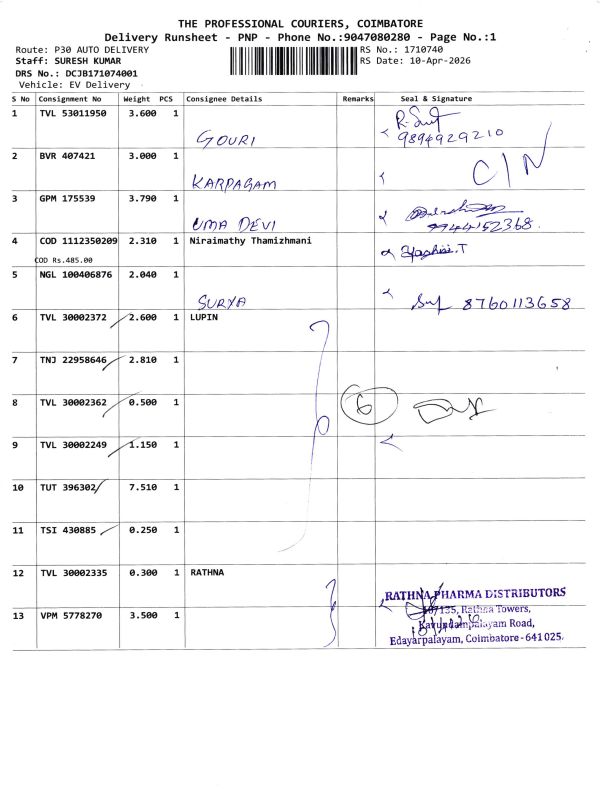 THE PROFESSIONAL COURIERS, COIMBATORE
Delivery Runsheet - PNP - Phone No.:9047080280 - Page No.:1
Route: P30 AUTO DELIVERY
RS No.: 1710740
Staff: SURESH KUMAR
RS Date: 10-Apr-2026
DRS No.: DCJB171074001
Vehicle: EV Delivery
S No Consignment No Weight PCS Consignee Details Remarks Seal & Signature
1 TVL 53011950 3.600 1
GOURI 9894929210
2 BVR 407421 3.000 1
KARPAGAM C/N
3 GPM 175539 3.790 1
UMA DEVI 9944152368.
4 COD 1112350209 2.310 1 Niraimathy Thamizhmani
COD Rs.485.00
5 NGL 100406876 2.040 1
SURYA 8760113658
6 TVL 30002372 2.600 1 LUPIN
7 TNJ 22958646 2.810 1
8 TVL 30002362 0.500 1 6
9 TVL 30002249 1.150 1
10 TUT 396302 7.510 1
11 TSI 430885 0.250 1
12 TVL 30002335 0.300 1 RATHNA
RATHNA PHARMA DISTRIBUTORS
13 VPM 5778270 3.500 1
Rathna Towers,
Kavundampalayam Road,
Edayarpalayam, Coimbatore - 641 025.